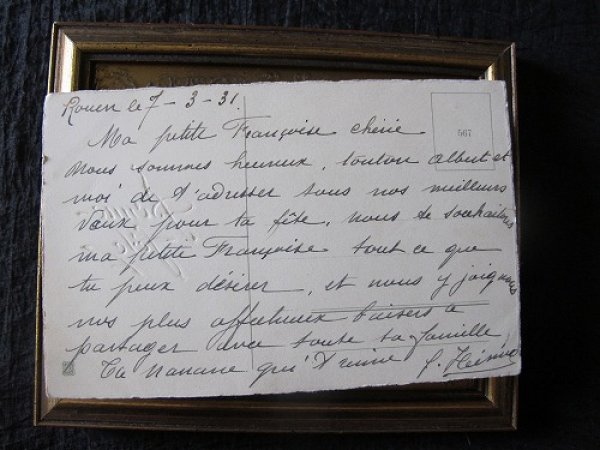 Rouen le 7-3-31.
567
Ma petite Françoise chérie
nous sommes heureux, tonton Albert et
moi de t'adresser tous nos meilleurs
vœux pour ta fête, nous te souhaitons
ma petite Françoise tout ce que
tu peux désirer, et nous y joignons
nos plus affectueux baisers à
partager avec toute ta famille,
Ta qui t'aime